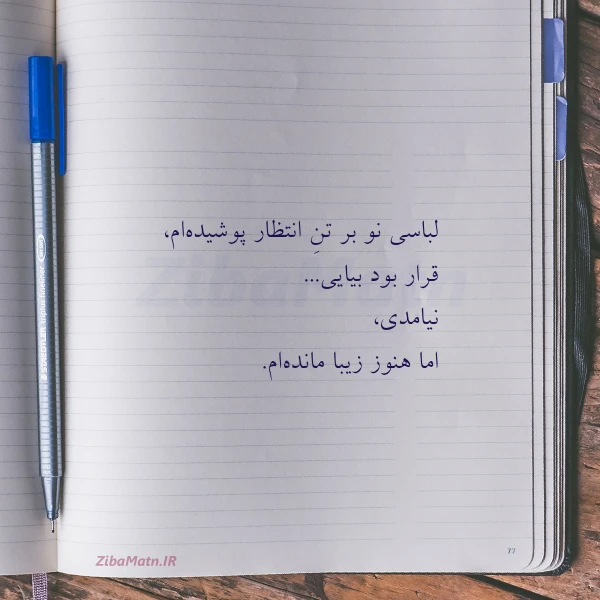 لباسی نو بر تنِ انتظار پوشیده‌ام،
قرار بود بیایی...
نیامدی،
اما هنوز زیبا مانده‌ام.
ZibaMatn
STAEDTLER triplus fineliner
77
ZibaMatn.IR